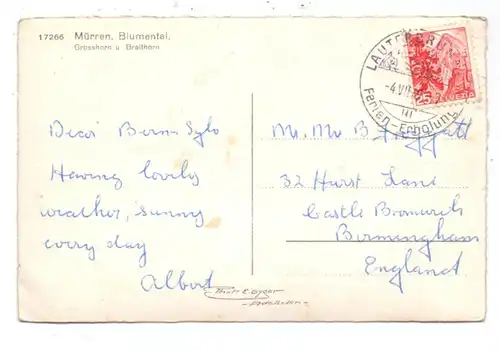 17266 Mürren. Blumental.
Grosshorn u Breithorn
LAUTERBR
-4.VII
Ferien - Erholung
25
HELVETIA
Having lovely
weather, sunny
every day
Albert
Mr. Mrs B
32 Hurst Lane
Castle Bromwich
Birmingham
England
Phot. E. Gyger
-Adelboden-